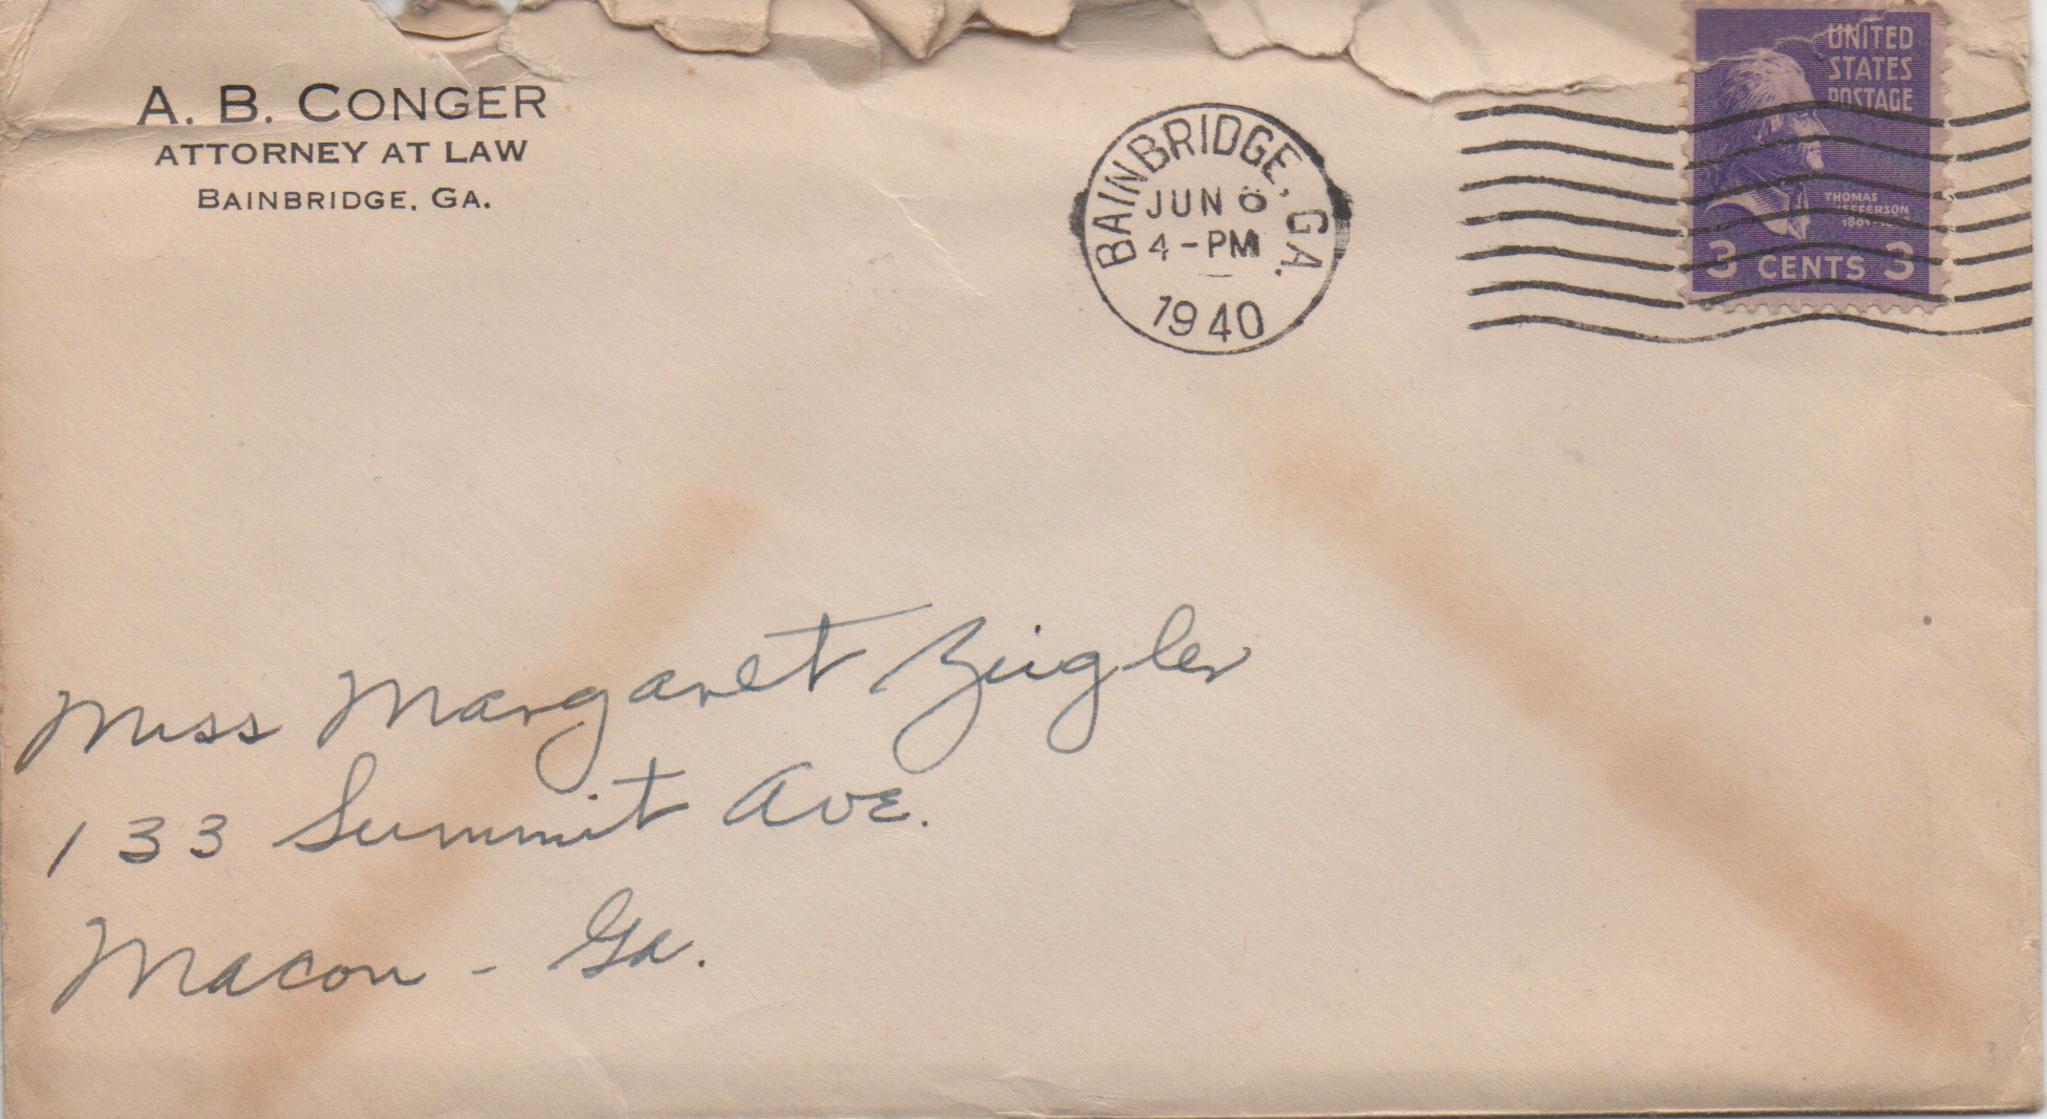 A. B. CONGER
ATTORNEY AT LAW
BAINBRIDGE, GA.
BAINBRIDGE, GA.
JUN 6
4-PM
1940
UNITED
STATES
POSTAGE
THOMAS
JEFFERSON
3 CENTS 3
Miss Margaret Zeigler
133 Summit Ave.
Macon - Ga.